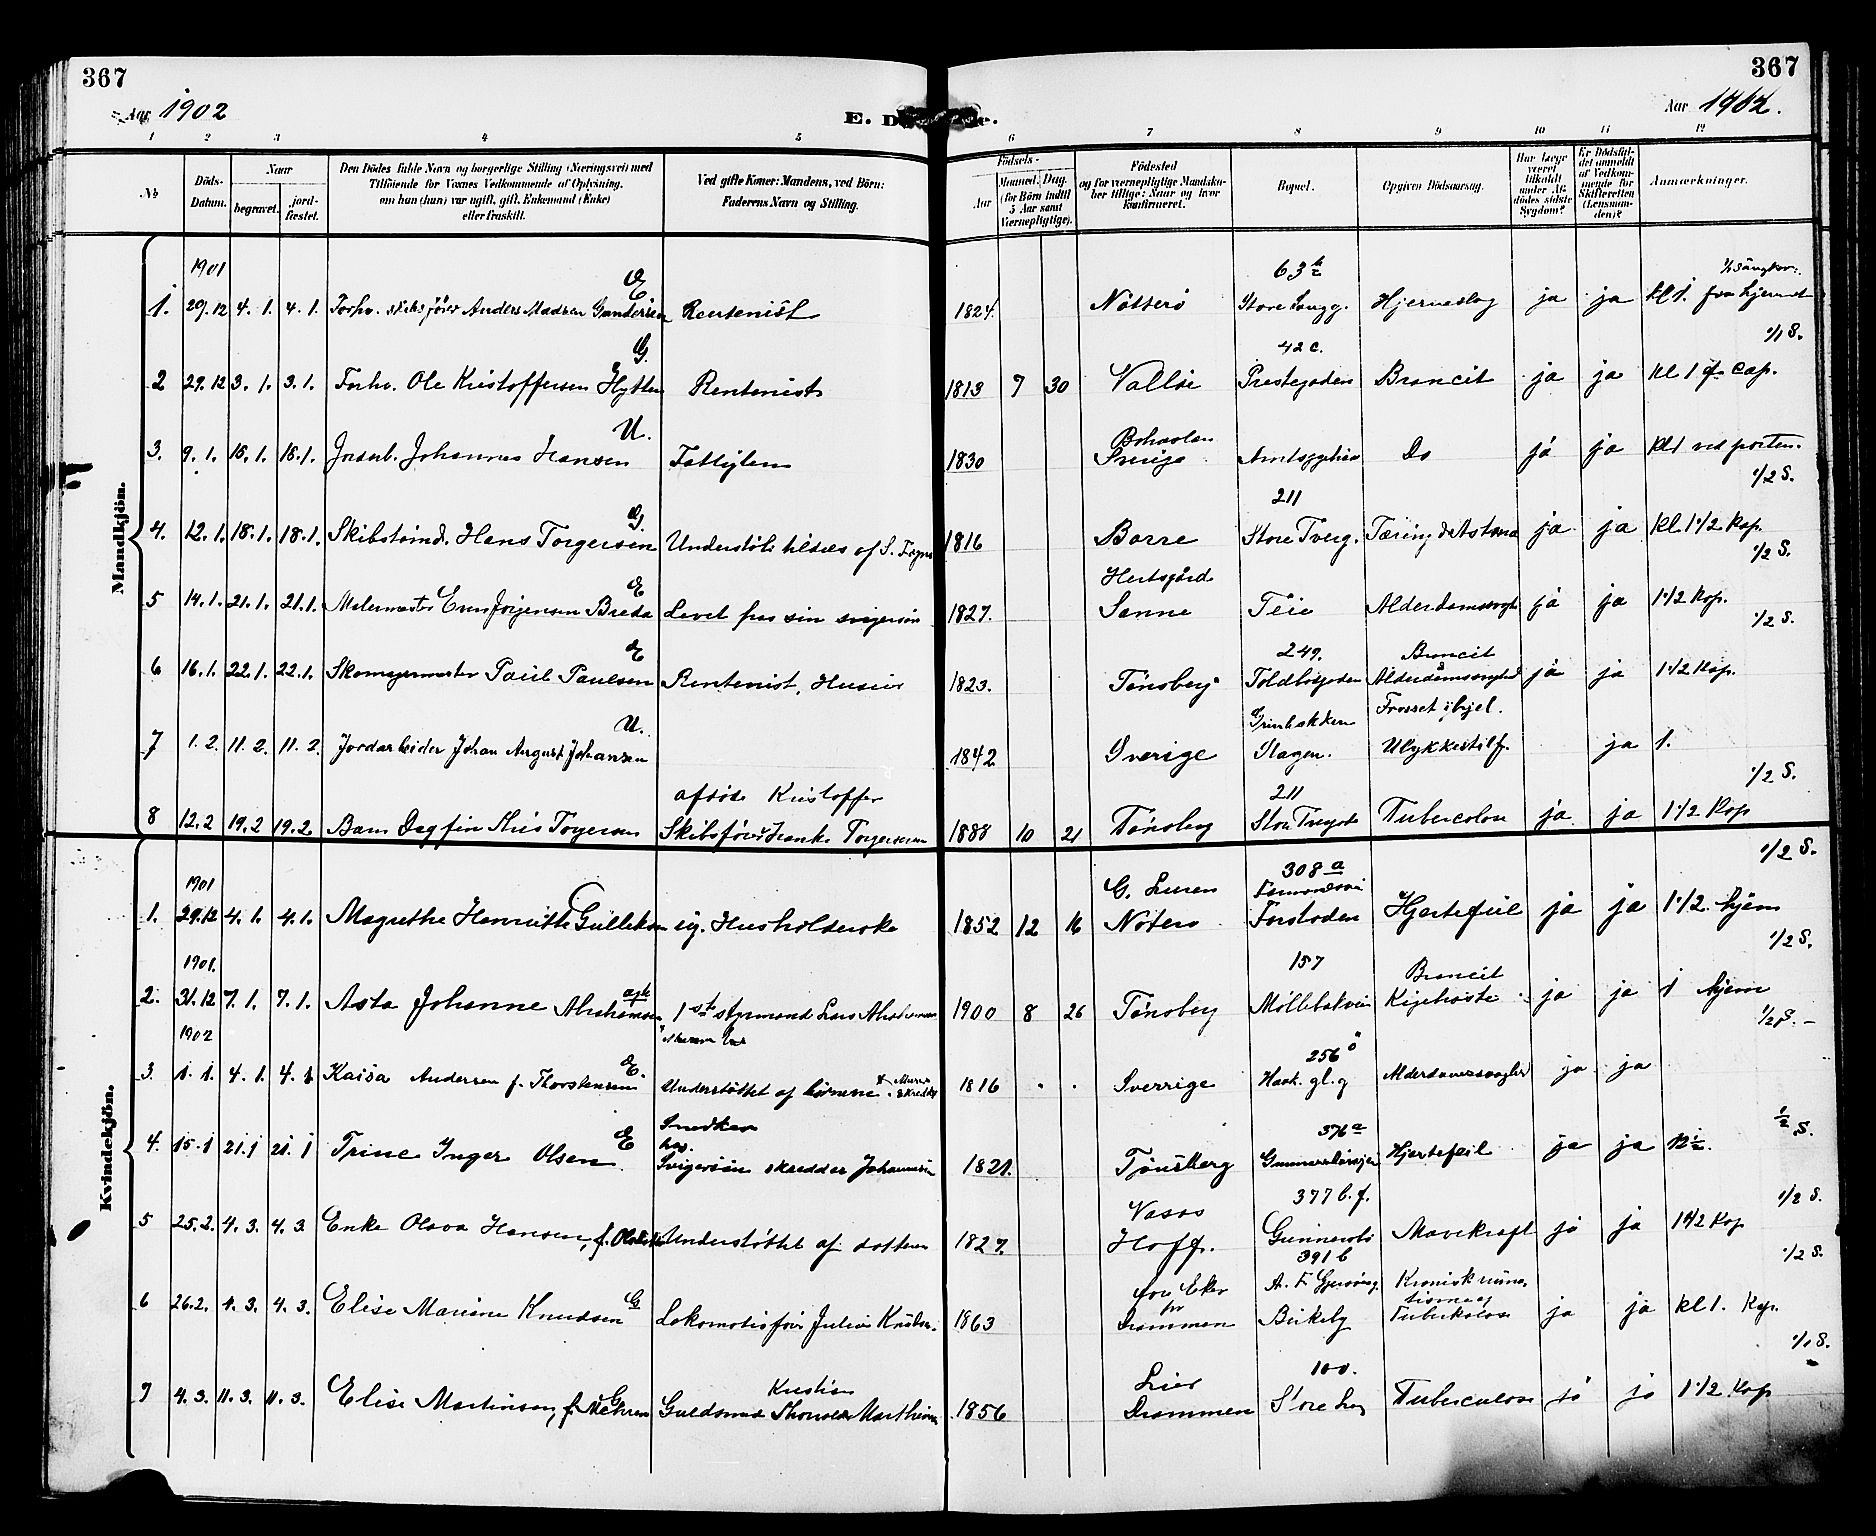 367
367
Aar 1902
E. D
Aar 1902.
1 2 3 4 5 6 7 8 9 10 11 12
№ Döds-Datum. Naar begravet. jordfæstet. Den Dödes fulde Navn og borgerlige Stilling (Næringsvei) med Tilföiende for Voxnes Vedkommende af Oplysning, om han (hun) var ugift, gift, Enkemand (Enke) eller fraskilt. Ved gifte Koner: Mandens, ved Börn: Faderens Navn og Stilling. Födsels- Aar Maaned. Dag. (for Börn indtil 5 Aar samt Værnepligtige). Födested og for værnepligtige Mandskaber tillige: Naar og hvor Konfirmeret. Bopæl. Opgiven Dödsaarsag. Har Læge været tilkaldt under Afdödes sidste Sygdom? Er Dödsfaldet anmeldt af Vedkommende for Skifteretten (Lensmanden)? Anmærkninger.
Mandkjön.
1901 E 63 b
1. 29.12 4. 1. 4. 1. Forhv. skibsfører Anders Madsen Gundersen Rentenist 1824. Nøtterø Store Langg. Hjerneslag ja ja kl 1. fra hjemmet
1/1 S.
G. 42 c.
2 29.12 3. 1. 3. 1. Forhv. Ole Kristoffersen Hytten Rentenist 1813 7 30 Valløe Prestegaden Broncit ja ja kl 1 f. Cap.
U.
3. 9. 1. 16. 1. 16. 1. Jordarb. Johannes Hansen Fattiglem 1830 Sverige Do ja ja kl 1 ved porten.
1/2 S.
G. 211
4. 12. 1. 18. 1. 18. 1. Skibstømd. Hans Torgersen Understøt 1816 Borre Store Tverg. Tæring ja ja kl. 1 1/2 Kap.
1/2 S.
E
5 14. 1. 21. 1. 21. 1. Malermester Jørgensen Breda Levet hos sin svigersøn 1827. Sanne Teie Alderdomssvagh ja ja 1 1/2 Kap.
1/2 S.
E 249. Broncit
6 16. 1. 22. 1. 22. 1. Skomagermester Paul Paulsen Rentenist, Huseier 1823. Tønsberg Toldbodgaden Alderdomssvaghed ja ja 1 1/2 Kap.
U. Grinbakken Frosset ihjel.
7 1. 2. 11. 2. 11. 2. Jordarbeider Johan August Johansen 1842 Sverige Slagen. Ulykkestilf. ja 1.
1/2 S.
afdøde Kristoffer 211
8 12. 2 19. 2 19. 2. Barn Dagfin Thris Torgersen Skibsfører Torgersen 1888 10 21 Tønsberg Store Tvergt Tubercolose ja ja 1 1/2 Kap
1/2 S.
Kvindekjön.
1901 308 a
1. 29.12 4. 1. 4. 1. Magrethe Henriette Gulliksen ug. Husholderske 1852 12 16 Nøterø Farstaden Hjertefeil ja ja 1 1/2. hjem
1/2 S.
1901. 157 Broncit
2. 31.12 7. 1. 7. 1. Asta Johanne Abrahamsen 1ste styrmand Lars Abrahamsen 1900 8 26 Tønsberg Møllebakvein Kighoste ja ja 1 hjem
1902 1/2 S. –
E. 256
3. 1. 1. 4. 1. 4. 1 Kaisa Andersen f. Thorstensen Understøttet af børnene 1816 Sverrige Haak. gl. g Alderdomssvaghed ja ja
1/2 S.
E Snedker hos 376 a
4. 15. 1 21. 1 21. 1 Trine Inger Olsen. Svigersøn skredder Johannesen 1821. Tønsberg Hjertefeil ja ja 12 1/2.
1/2 S.
Vasos 377 b. f.
5 25. 2. 4. 3. 4. 3. Enke Olava Hansen, f. Understøttet af datteren 1827. Hoff. Gunnersbø Mavekræft ja ja 1 1/2 Kap
1/2 S.
G 391 b
6 26. 2. 4. 3. 4. 3. Elise Marine Knudsen Lokomotivfører Julius Knudsen. 1863 Drammen Birkeby Kronisk Tuberkulose ja ja kl 1. Kap.
1/1 S.
Kristian Lier 100.
7 4. 3. 11. 3. 11. 3. Elise Martinsen, f. Mehren Guldsmed 1856 Drammen Store Lang Tuberculose ja ja 1 1/2 Kap